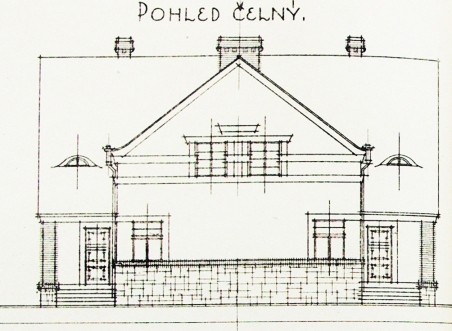 POHLED ČELNÝ.